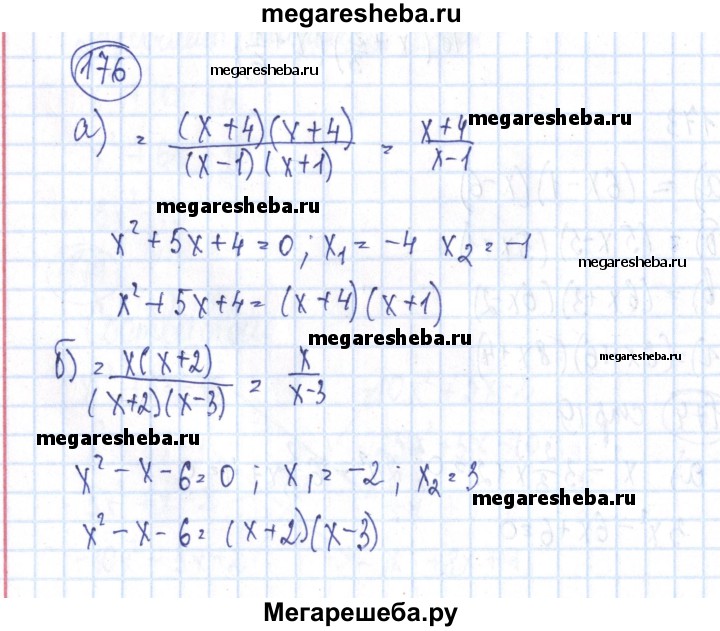 megaresheba.ru
176 megaresheba.ru
а) = (x+4)(x+4)/(x-1)(x+1) = x+4/x-1 megaresheba.ru
megaresheba.ru
x²+5x+4=0; x₁=-4 x₂=-1
megaresheba.ru
x²+5x+4=(x+4)(x+1)
megaresheba.ru
б) = x(x+2)/(x+2)(x-3) = x/x-3 megaresheba.ru
megaresheba.ru
x²-x-6=0; x₁=-2; x₂=3
megaresheba.ru
x²-x-6=(x+2)(x-3)
Мегарешеба.ру